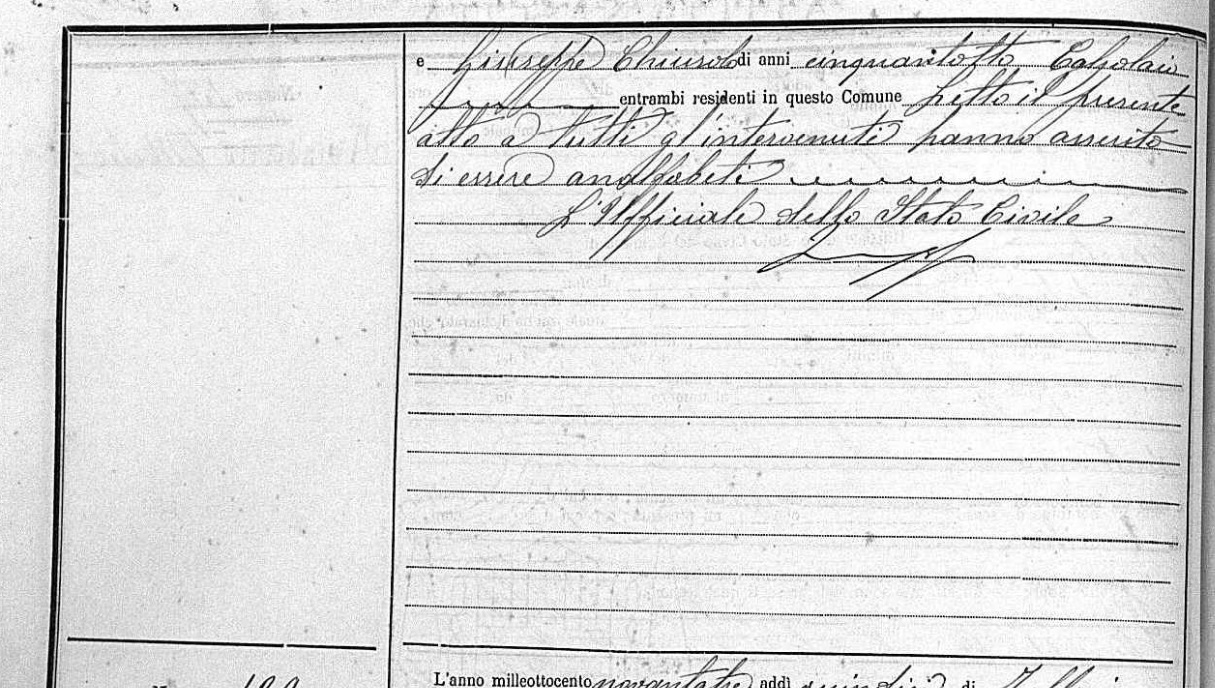 e Giuseppe Chiusolo di anni cinquantotto Calzolaio
entrambi residenti in questo Comune Letto il presente
atto a tutti gl'intervenuti hanno asserito
di essere analfabeti
L'Ufficiale dello Stato Civile
L'anno milleottocento novantatre addì quindici di